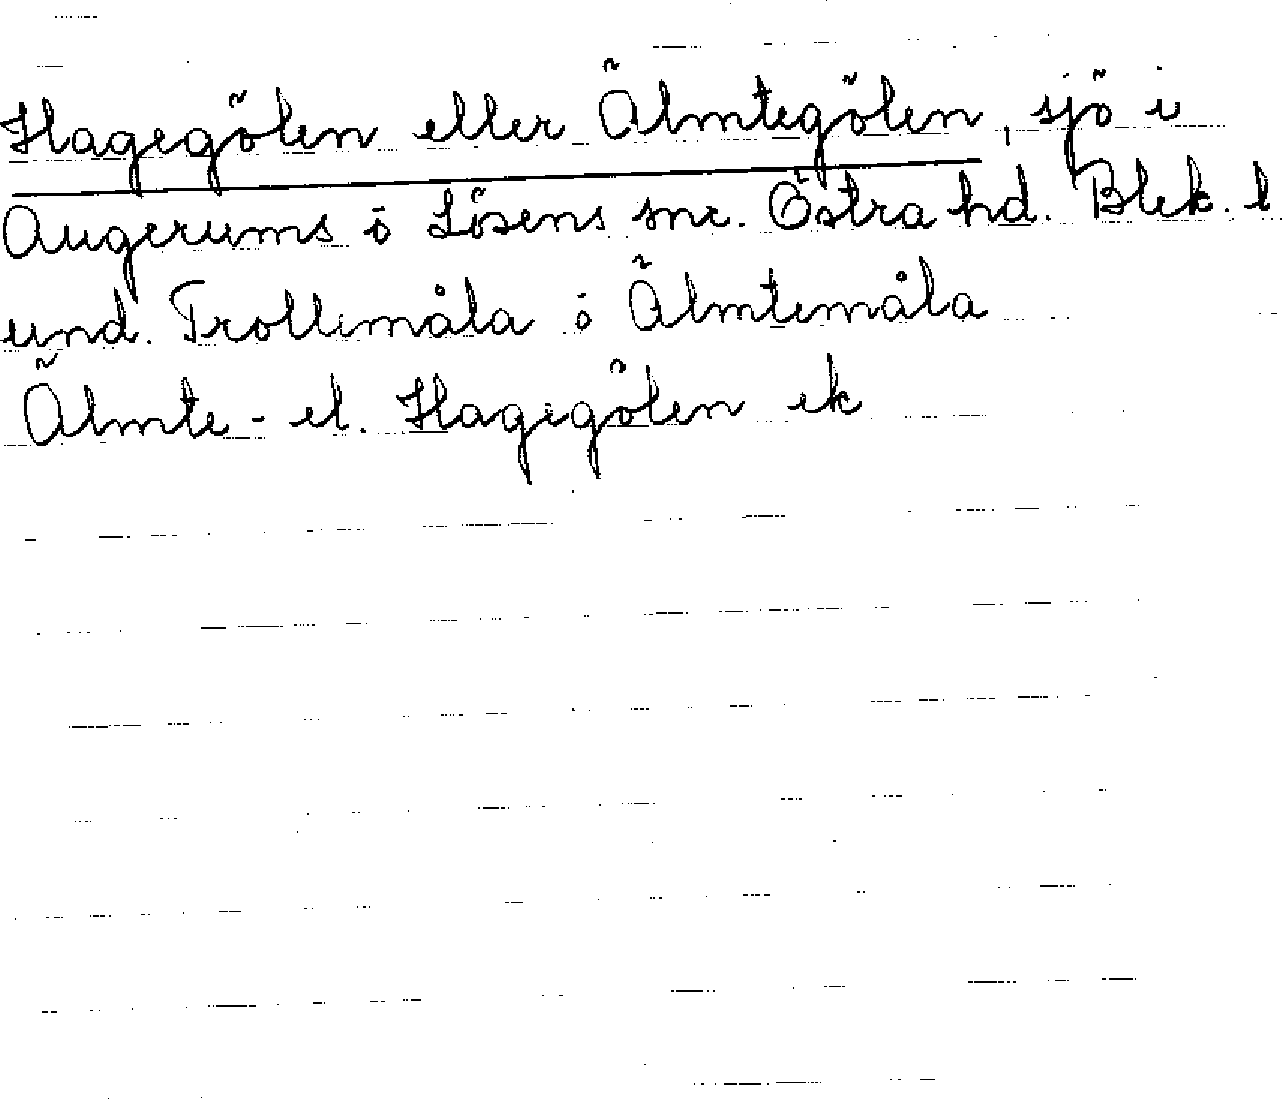 Hagegölen eller Älmtegölen, sjö i
Augerums o Lösens snr. Östra hd. Blek. l.
und. Trollemåla o Älmtemåla
Älmte- el. Hagegölen ek